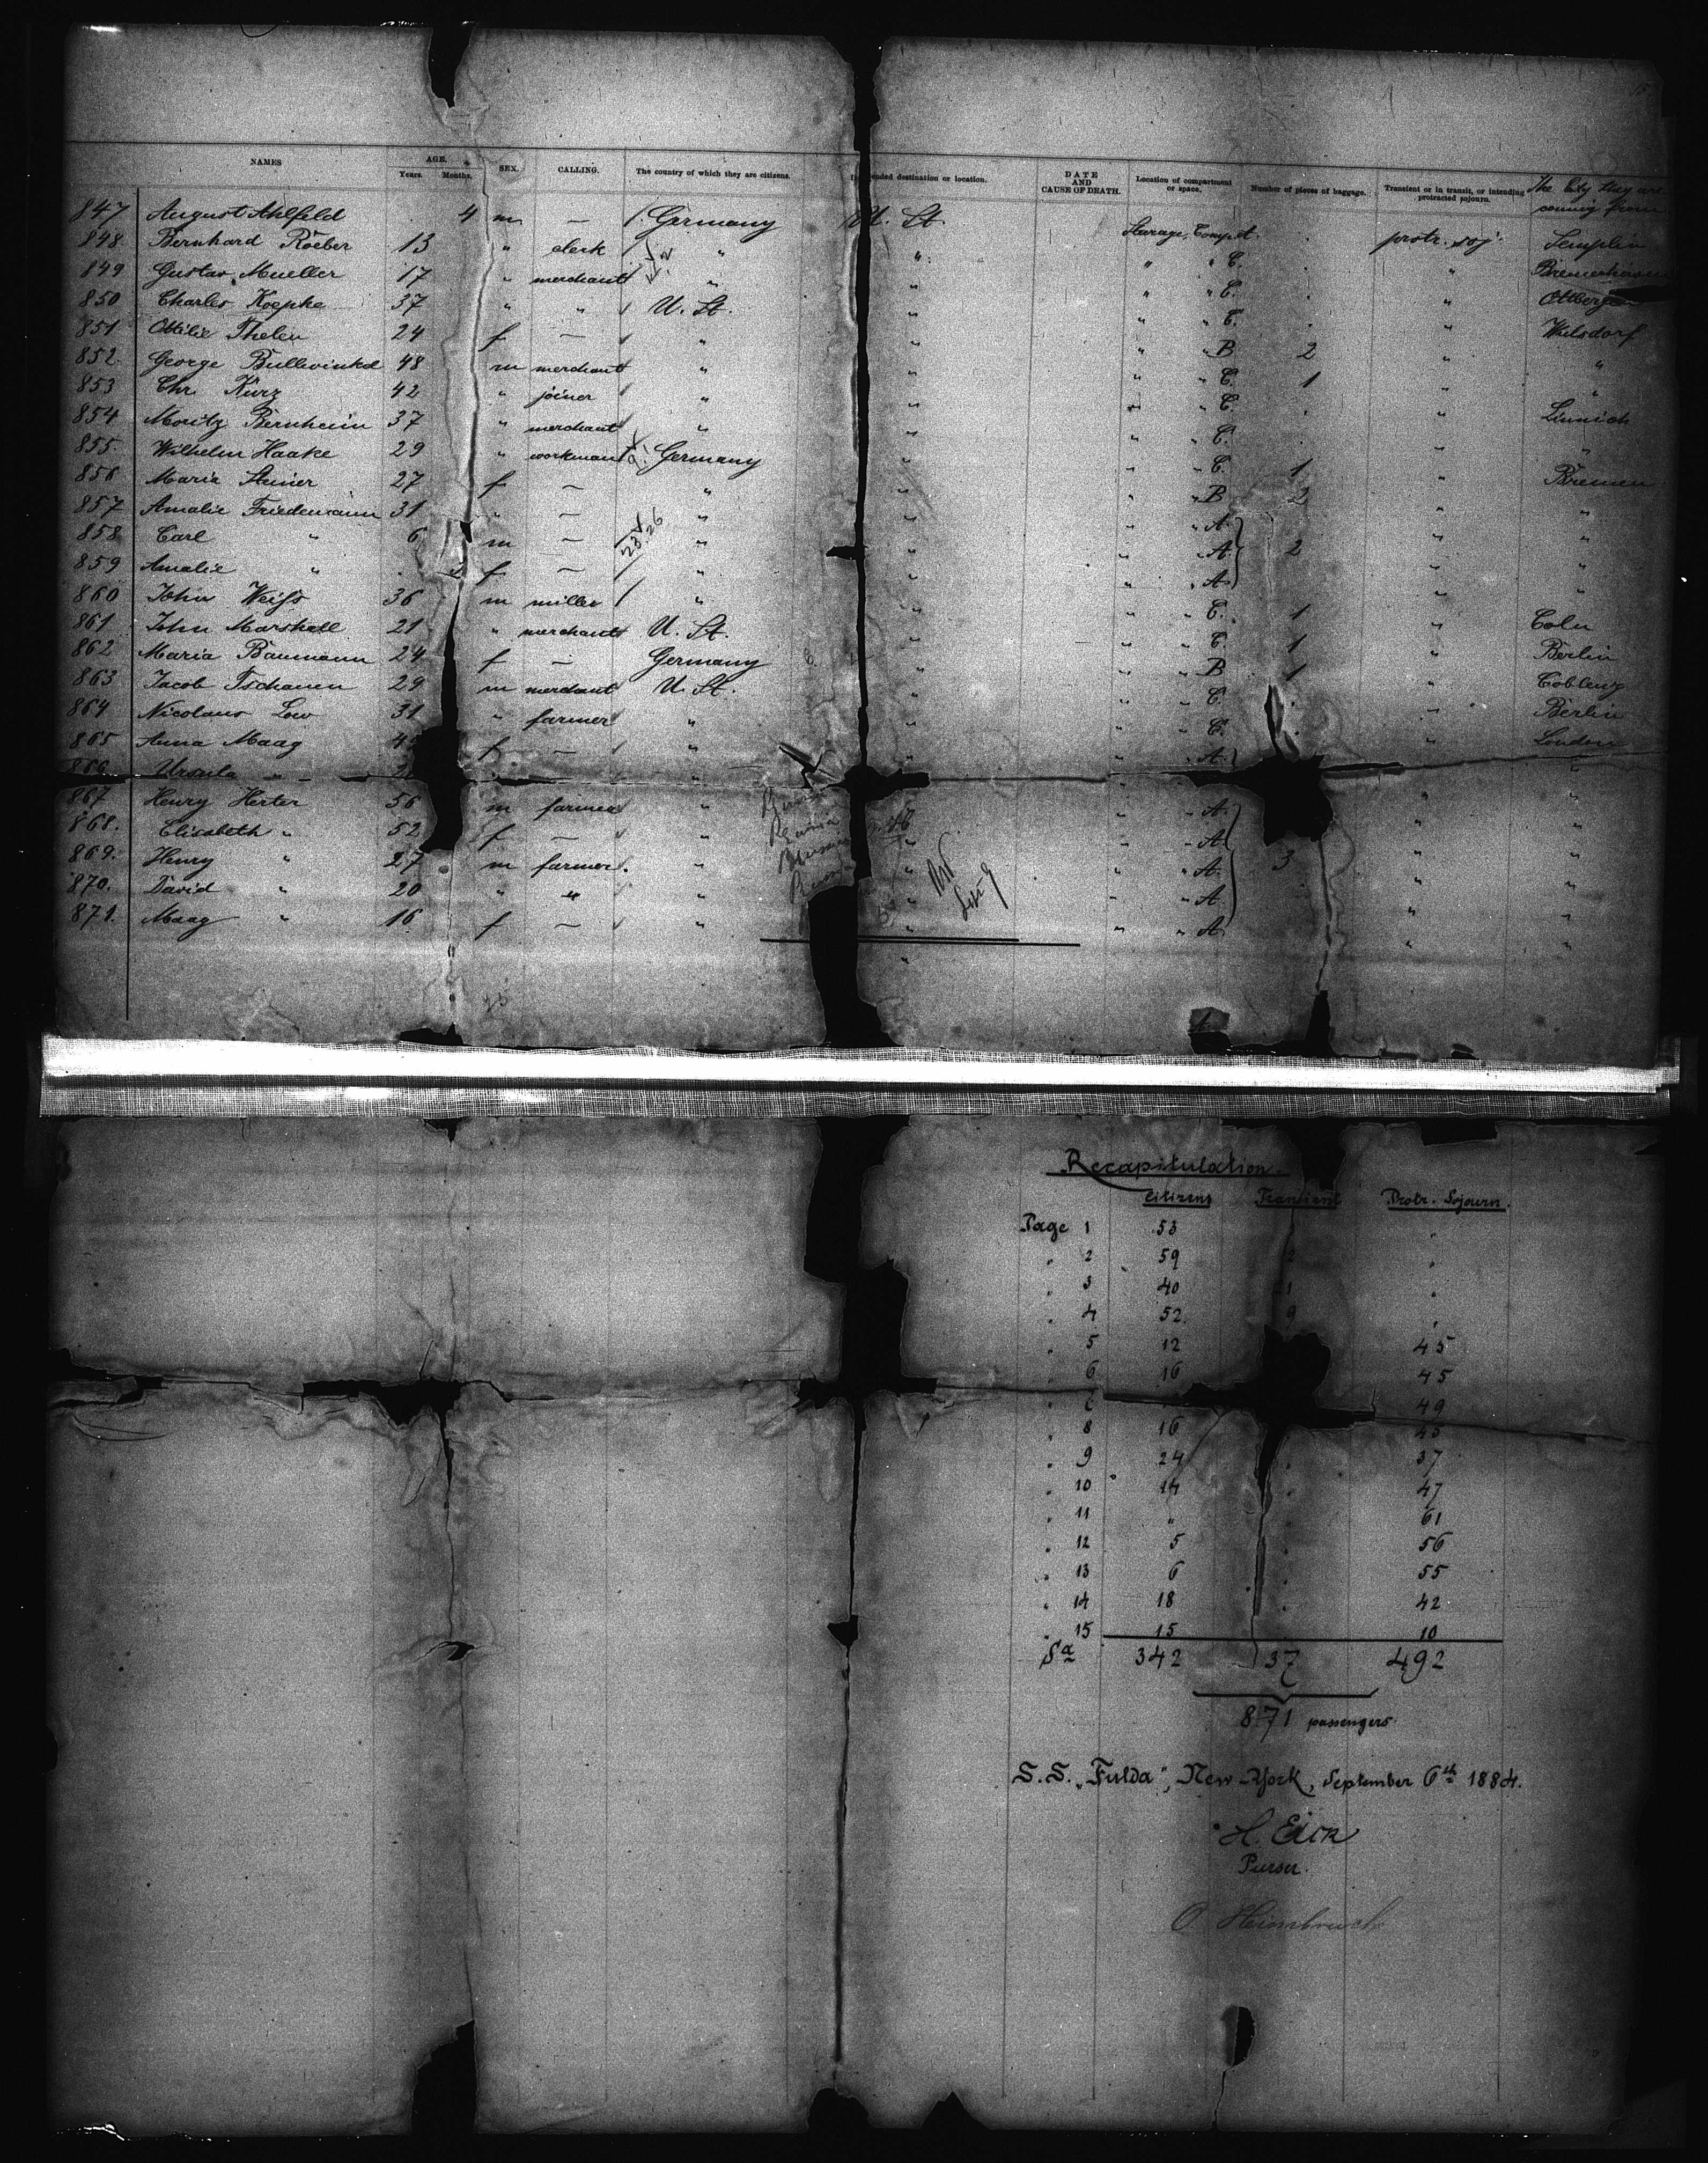 NAMES AGE. Years. Months. SEX. CALLING. The country of which they are citizens. Intended destination or location. DATE AND CAUSE OF DEATH. Location of compartment or space. Number of pieces of baggage. Transient or in transit, or intending protracted sojourn. The City they are coming from
847 August Ahlfeld 4 m — Germany U. St. Steerage, Compt. protr. soj. Templin
848 Bernhard Röeber 13 " clerk " " " " C. " Bremerhaven
849 Gustav Mueller 17 " merchant " " " " C. " Ottbergen
850 Charles Koepke 37 " " U. St. " " " C. " Wulsdorf
851 Ottilie Thelen 24 f — " " " " B 2 " "
852 George Bullwinkel 48 m merchant " " " " C. 1 " "
853 Chr. Kurz 42 " joiner " " " " C. " Linnich
854 Moritz Bernheim 37 " merchant " " " " C. " "
855. Wilhelm Haake 29 " workman Germany " " " C. 1 " Bremen
856 Maria Steiner 27 f — " " " " B 2 " "
857 Amalie Friedemann 31 " — " " " " A. " "
858 Carl " 6 m — " " " " A. 2 " "
859 Amalie " f — " " " " A. " "
860 John Weiss 36 m miller " " " " C. 1 " Coln
861 John Marshall 21 " merchant U. St. " " " C. 1 " Berlin
862 Maria Baumann 24 f — Germany " " " B 1 " Coblenz
863 Jacob Tschanen 29 m merchant U. St. " " " C. " Berlin
864 Nicolaus Low 31 " farmer " " " " C. " London
865 Anna Maag f — " " " " A. "
866 Ursula "
867 Henry Herter 56 m farmer " " " A. " "
868. Elisabeth " 52 f — " " " " A. " "
869. Henry " 27 m farmer. " " " " A. 3 " "
870. David " 20 " " " " " " A. " "
871. Maag " 16 f — " " " " A. " "
Recapitulation.
Citizens Transient Protr. Sojourn.
Page 1 53 "
" 2 59 2 "
" 3 40 "
" 4 52 9 "
" 5 12 45
" 6 16 45
" 49
" 8 16
" 9 24 " 37
" 10 14 " 47
" 11 " " 61
" 12 5 " 56
" 13 6 " 55
" 14 18 " 42
" 15 15 10
Sa 342 37 492
871 passengers.
S.S. "Fulda", New-York, September 6th 1884.
H. Eick
Purser.
O. Heimbruch